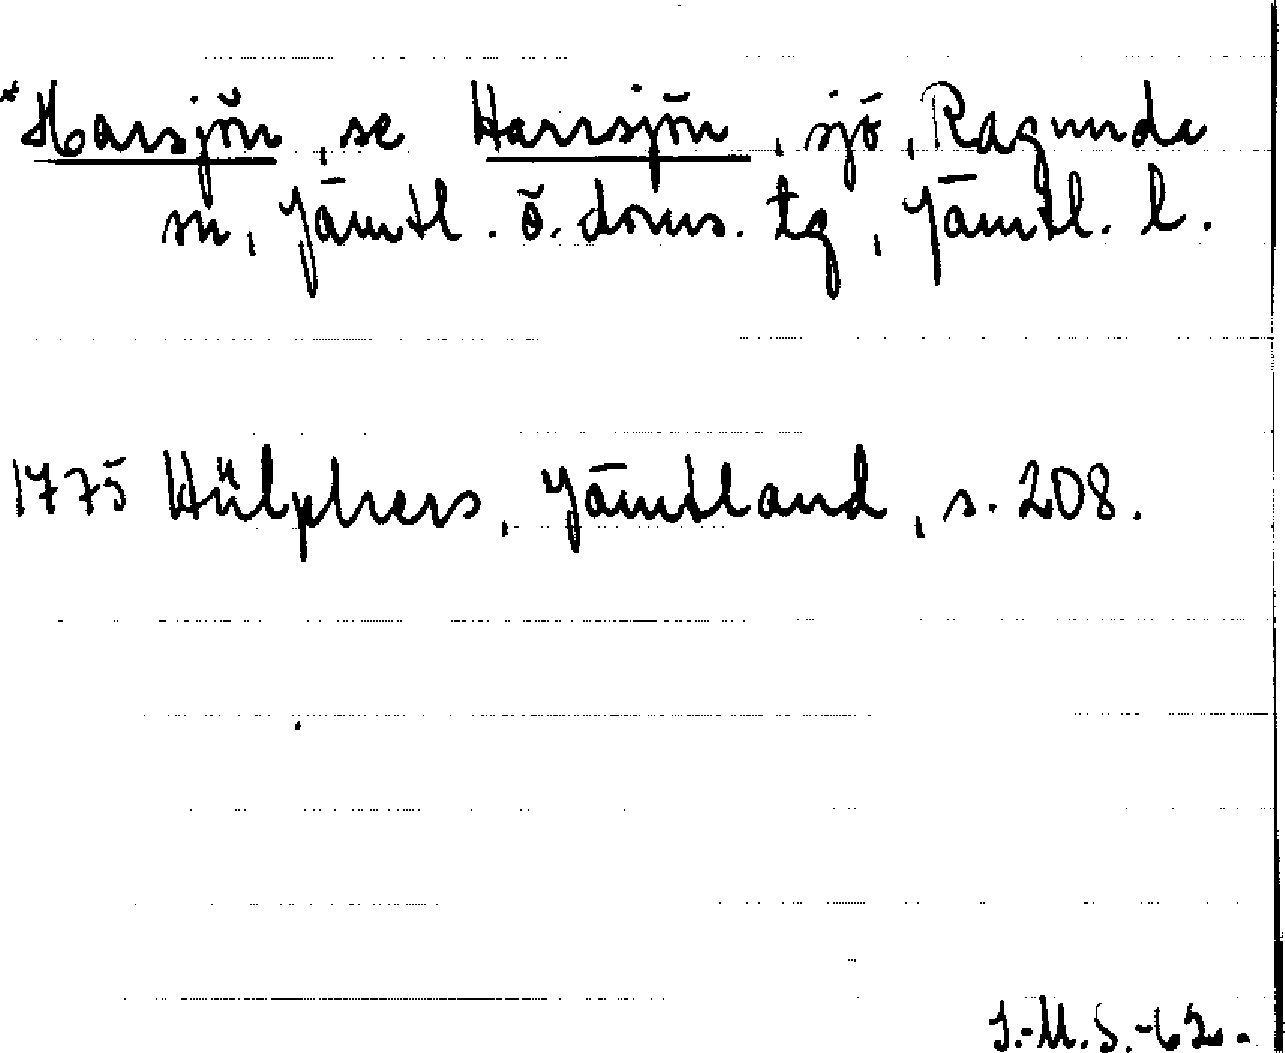 *Harsjön, se Harrsjön, sjö, Ragunda
sn, Jämtl. ö. doms. tg, Jämtl. l.
1775 Hülphers, Jämtland, s. 208.
I.-M.S.-62.